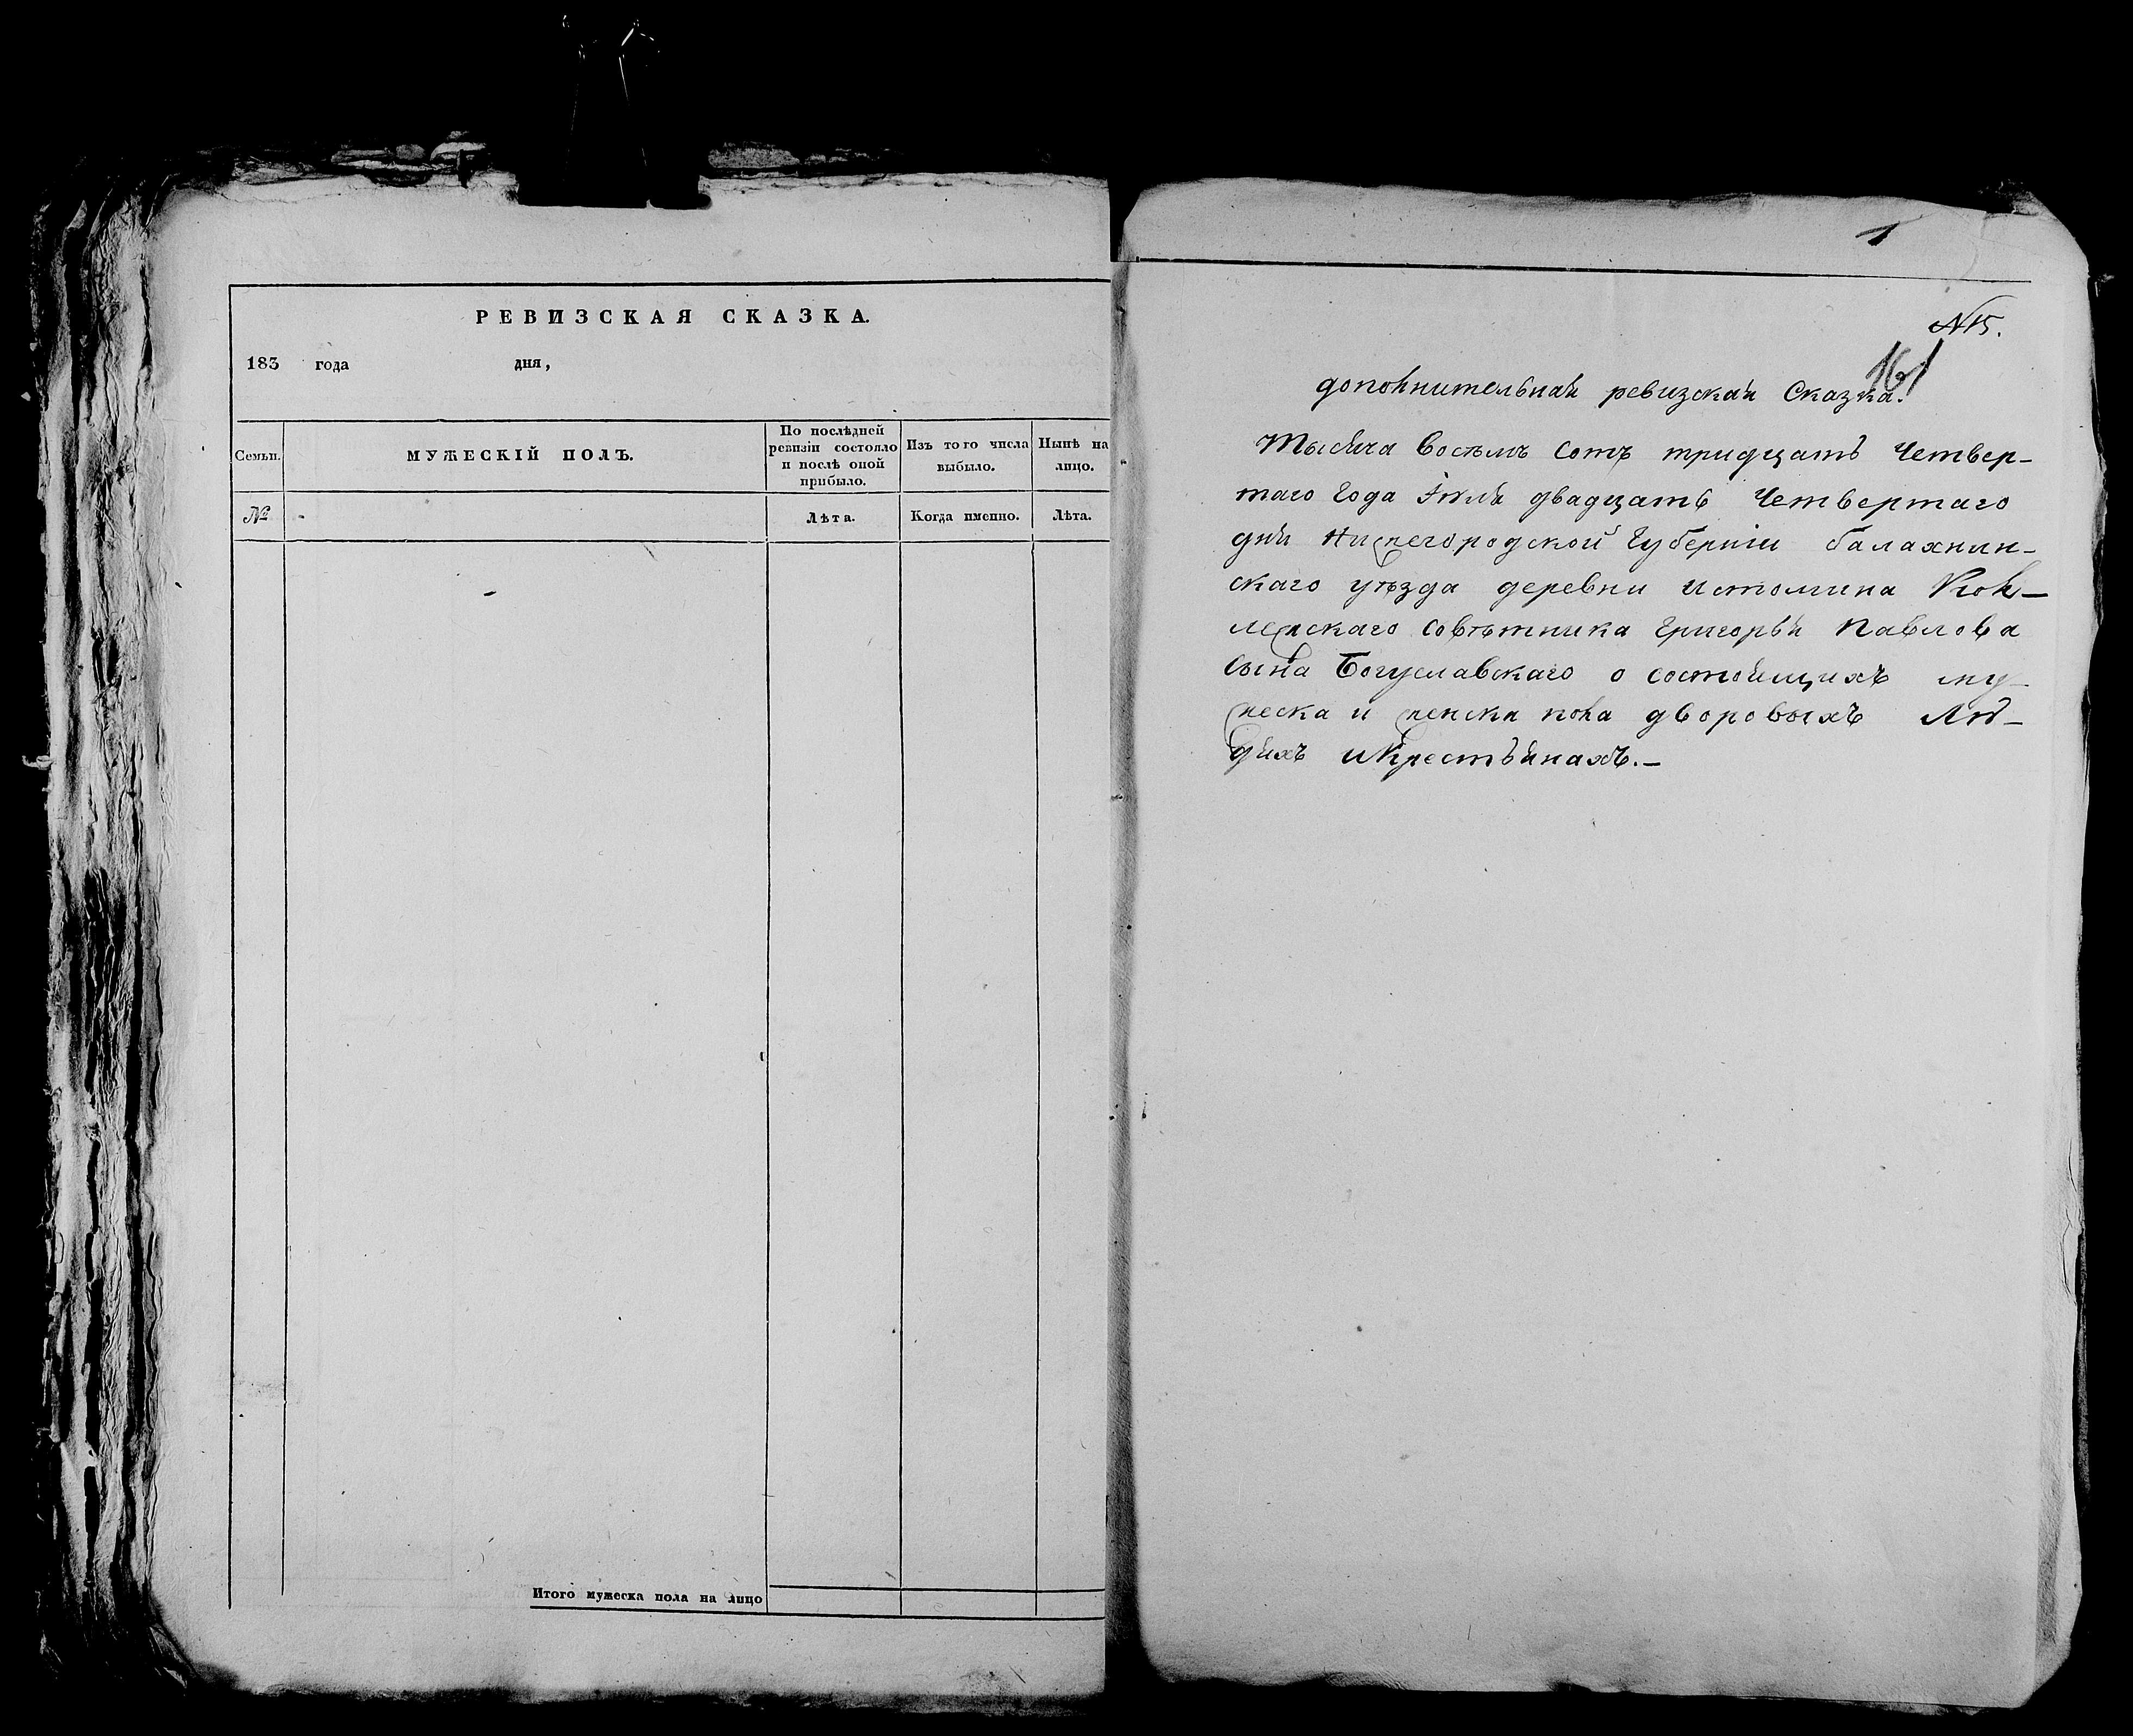 РЕВИЗСКАЯ СКАЗКА.
183 года дня,
Семьи.
МУЖЕСКІЙ ПОЛЪ.
По послѣдней
ревизіи состояло
и послѣ оной
прибыло.
Изъ того числа
выбыло.
Нынѣ на
лицо.
№
Лѣта.
Когда именно.
Лѣта.
Итого мужеска пола на лицо
1
№15.
161
дополнительная ревизская Сказка.
Тысяча восѣмь сотъ тридцать четвер-
таго года Іюля двадцать четвертаго
дня Нижегородской Губерніи балахнин-
скаго уѣзда деревни Истомина Кол-
лежскаго совѣтника григорья Павлова
сына Богуславскаго о состоящихъ му-
жеска и женска пола дворовыхъ лю-
дяхъ и Крестьянахъ.-